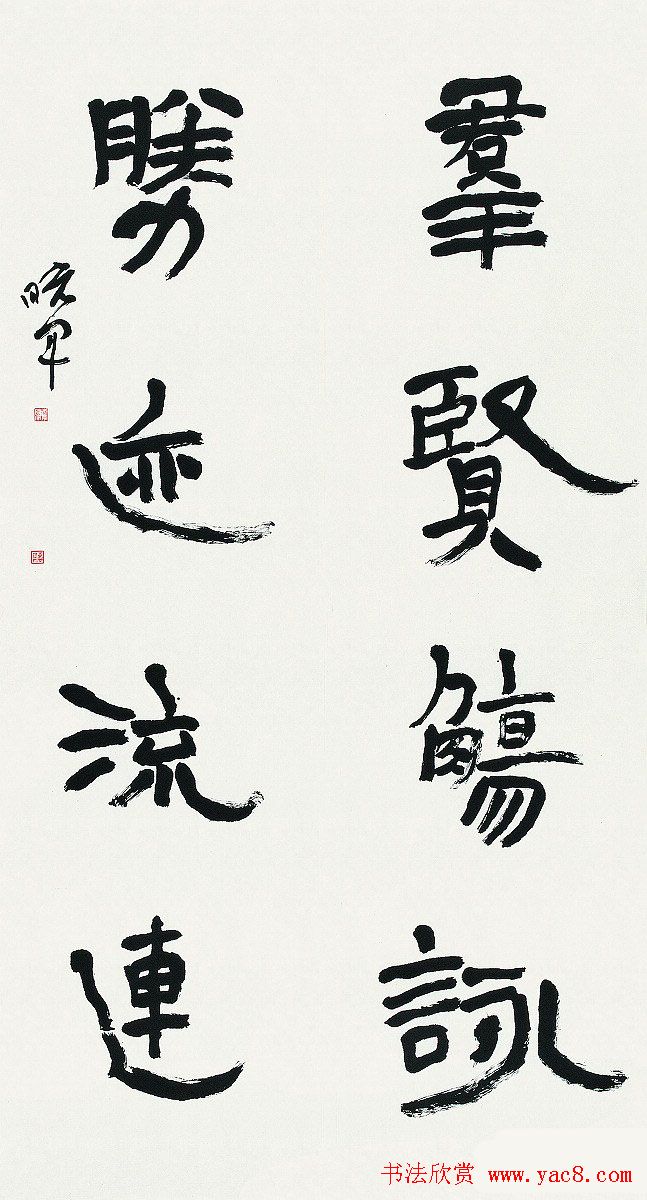 羣賢觴詠
勝迹流連
曉軍
书法欣赏 www.yac8.com